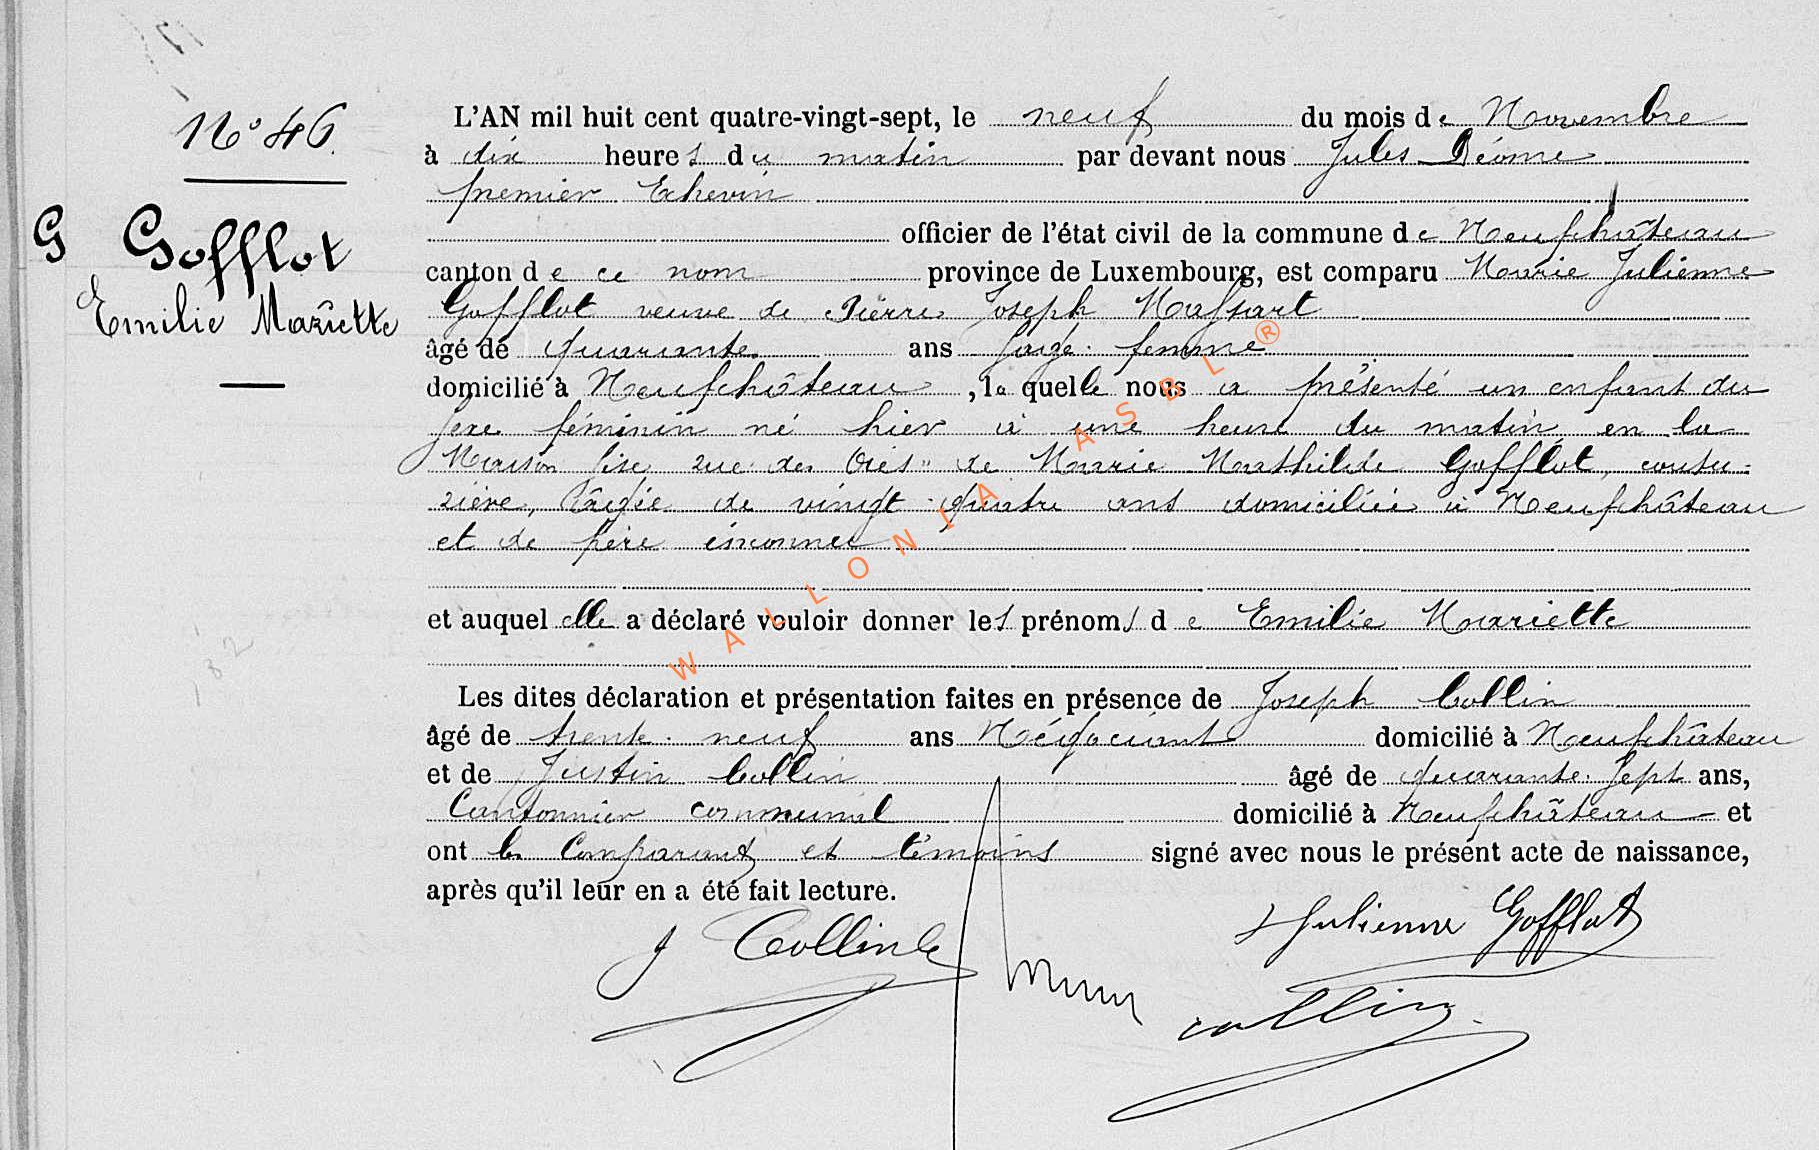 N° 46.
G Gofflot
Emilie Mariette
L'AN mil huit cent quatre-vingt-sept, le neuf du mois de Novembre
à dix heures du matin par devant nous Jules Déome
premier Echevin
officier de l'état civil de la commune de Neufchâteau
canton de ce nom province de Luxembourg, est comparu Marie Julienne
Gofflot veuve de Pierre Joseph Massart
âgé de quarante ans sage-femme
domicilié à Neufchâteau, laquelle nous a présenté un enfant du
sexe féminin né hier à une heure du matin, en la
Maison sise rue des de Marie Mathilde Gofflot, coutu-
rière, âgée de vingt-quatre ans domiciliée à Neufchâteau
et de père inconnu
et auquel elle a déclaré vouloir donner les prénoms de Emilie Mariette
Les dites déclaration et présentation faites en présence de Joseph Collin
âgé de trente-neuf ans Négociant domicilié à Neufchâteau
et de Justin Collin âgé de quarante-sept ans,
Cantonnier communal domicilié à Neufchâteau et
ont les Comparant et témoins signé avec nous le présent acte de naissance,
après qu'il leur en a été fait lecture.
Julienne Gofflot
J Collin
collin
WALLONIA ASBL ®